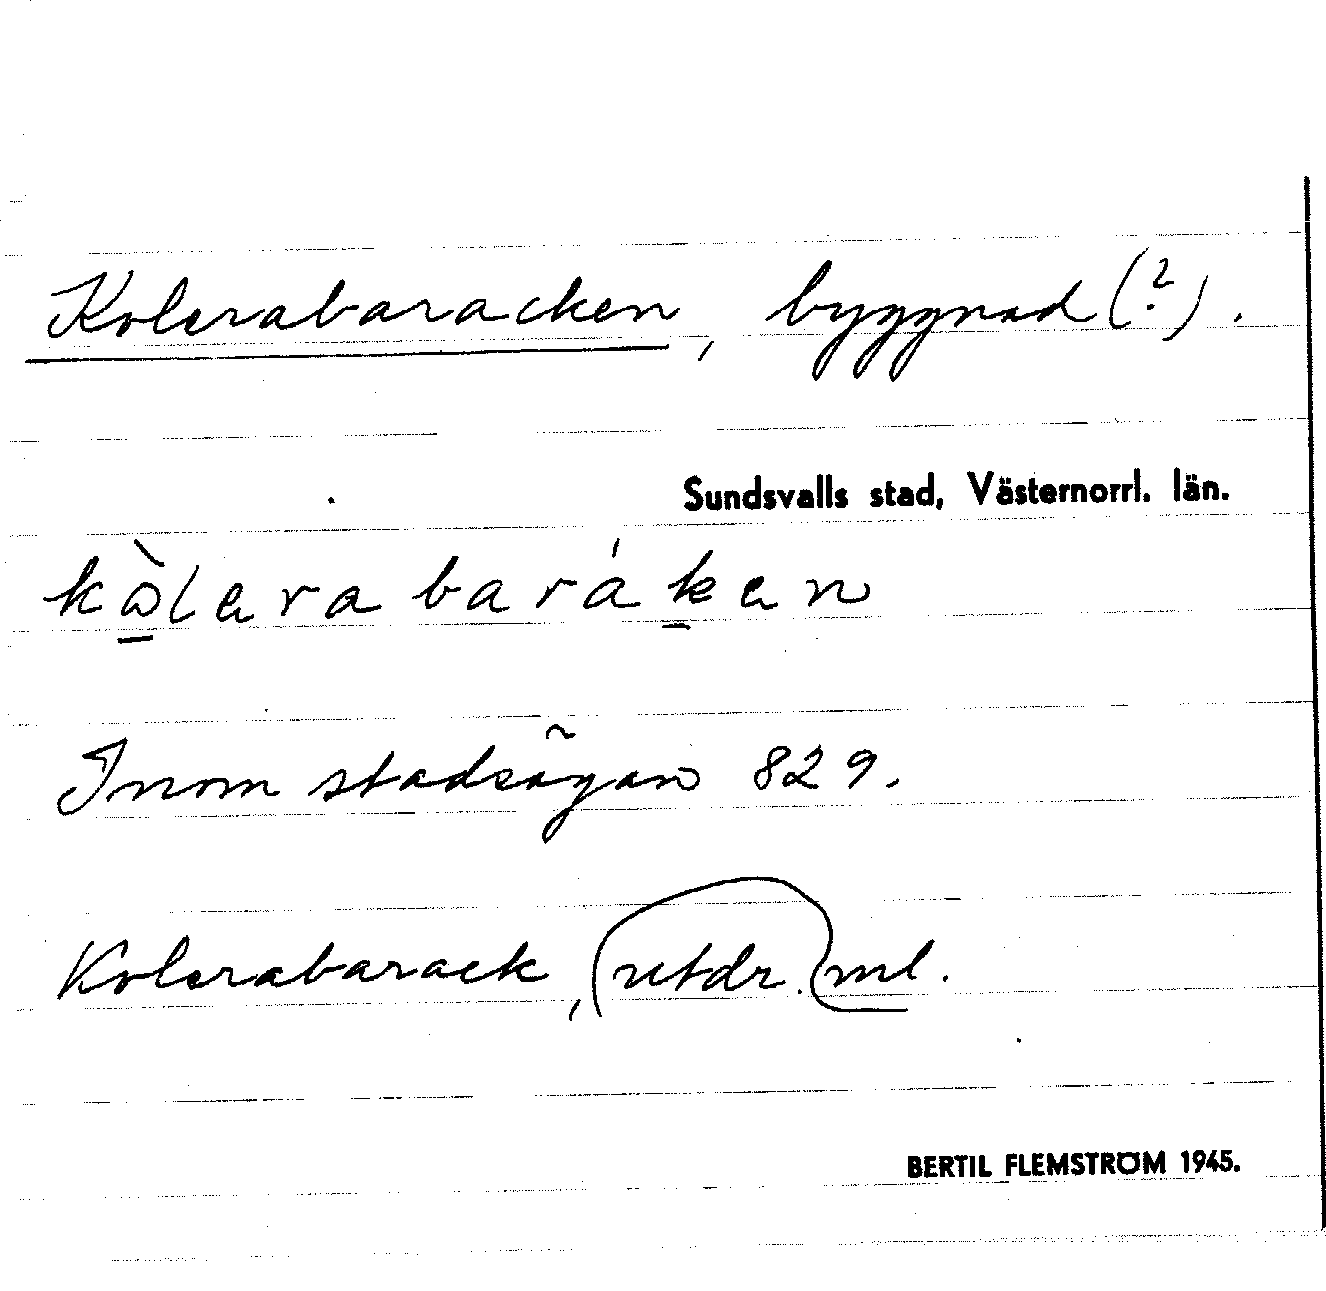 Kolerabaracken, byggnad (?).
Sundsvalls stad, Västernorrl. län.
kòlerabaráken
Inom stadsägan 829.
Kolerabarack, utdr. ml.
BERTIL FLEMSTRÖM 1945.